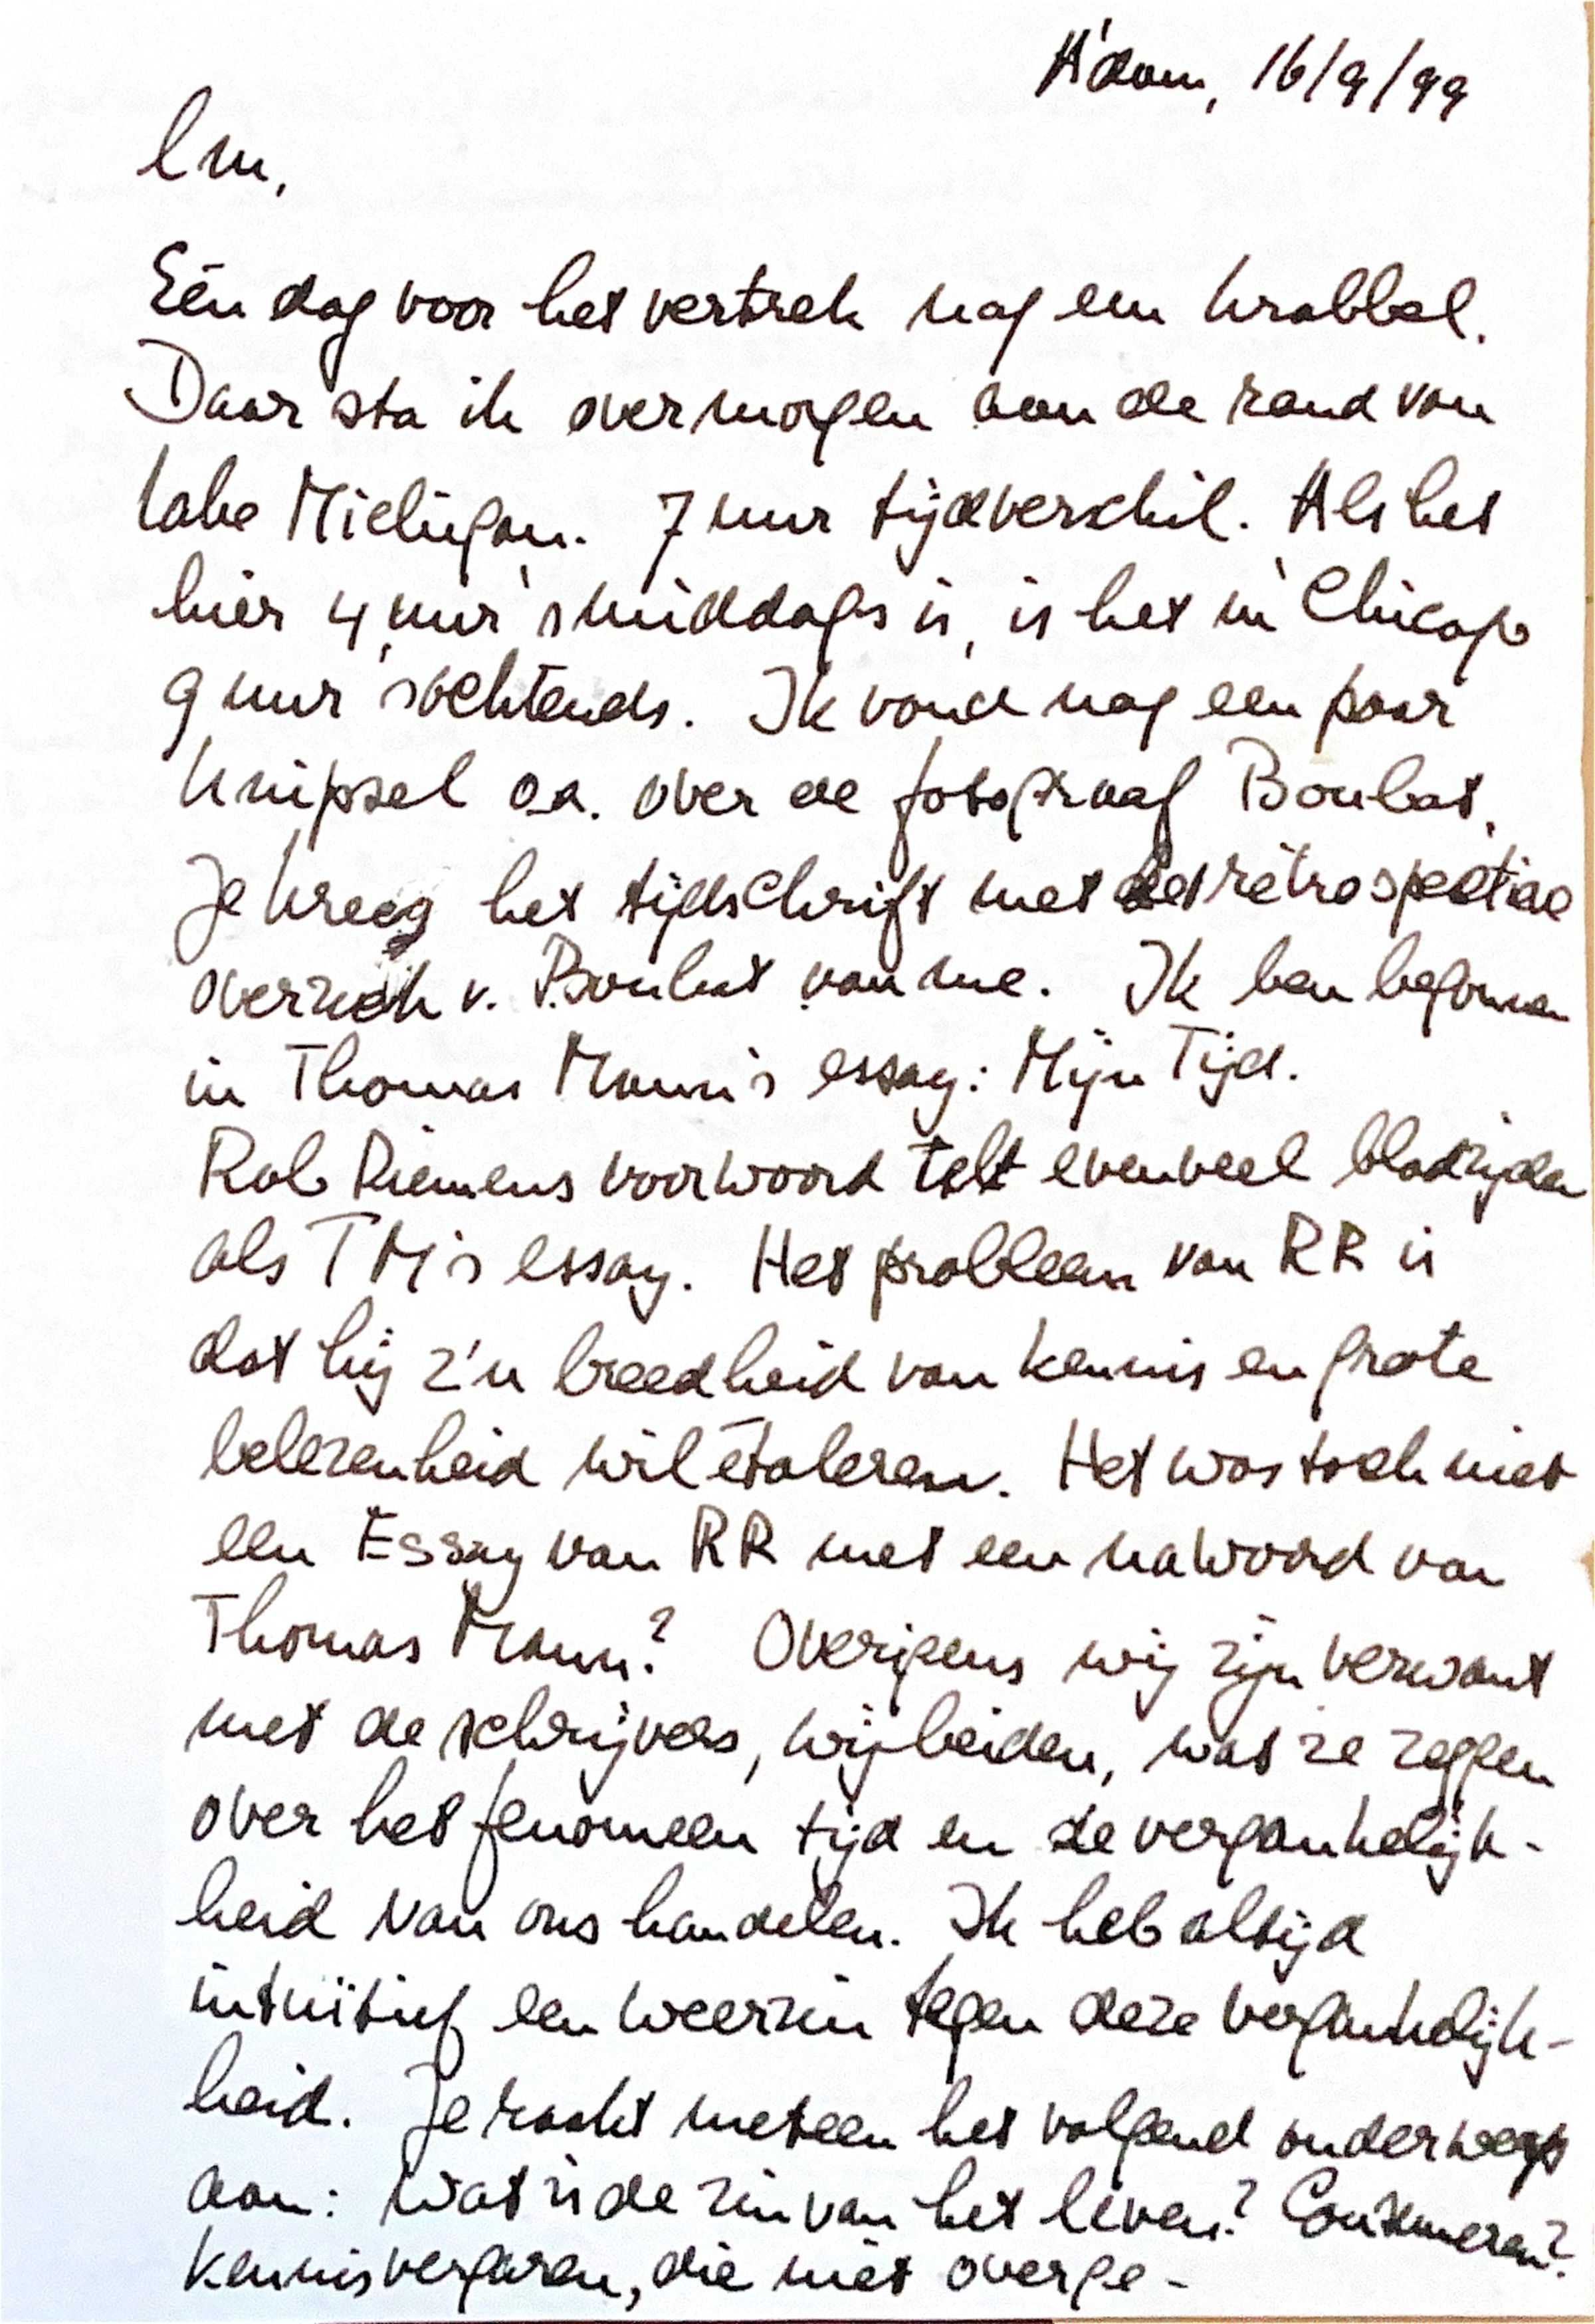 A'dam, 16/9/99
Lm,
Eén dag voor het vertrek nog een krabbel.
Daar sta ik overmorgen aan de rand van
Lake Michigan. 7 uur tijdverschil. Als het
hier 4 uur 's middags is, is het in Chicago
9 uur 's ochtends. Ik vond nog een paar
knipsel o.a. over de fotograaf Boubat.
Je kreeg het tijdschrift met het rétrospectief
overzich v. Boubat van me. Ik ben begonnen
in Thomas Mann's essay: Mijn Tijd.
Rob Riemens voorwoord telt evenveel bladzijden
als TM's essay. Het probleem van RR is
dat hij z'n breedheid van kennis en grote
belezenheid wil étaleren. Het was toch niet
een Essay van RR met een nawoord van
Thomas Mann? Overigens wij zijn verwant
met de schrijvers, wij beiden, wat ze zeggen
over het fenomeen tijd en de vergankelijk-
heid van ons handelen. Ik heb altijd
intuïtief een weerzin tegen deze vergankelijk-
heid. Je raakt meteen het volgend onderwerp
aan: Wat is de zin van het leven? Consumeren?
Kennis vergaren, die niet overge-